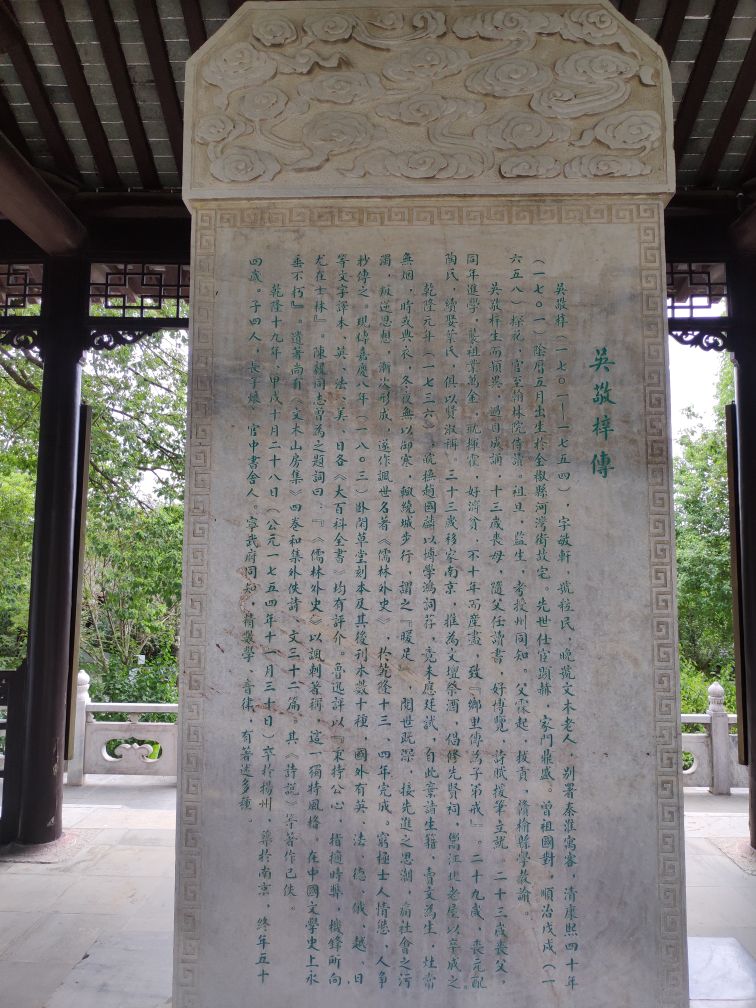 吳敬梓傳
吳敬梓（一七〇一—一七五四），字敏軒，號粒民，晚號文木老人，別署秦淮寓客，清康熙四十年
（一七〇一）陰曆五月出生於全椒縣河灣街故宅。先世仕宦顯赫，家門鼎盛。曾祖國對，順治戊戌（一
六五八）探花，官至翰林院侍讀。祖旦，監生，考授州同知。父霖起，拔貢，贛榆縣學教諭。
吳敬梓生而穎異，過目成誦，十三歲喪母，隨父任讀書，好博覽，詩賦援筆立就，二十三歲喪父，
同年進學，襲祖業萬金，性揮霍，好濟貧，不十年而產盡，致『鄉里傳為子弟戒』。二十九歲，喪元配
陶氏，續娶葉氏，俱以賢淑稱。三十三歲移家南京，推為文壇祭酒，倡修先賢祠，鬻江北老屋以辛成之
乾隆元年（一七三六），巡撫趙國麟以博學鴻詞荐，竟未應廷試，自此棄諸生籍，賣文為生，灶常
無烟，時或典衣，冬夜無以御寒，輒繞城步行，謂之『暖足』，閱世既深，接先進之思潮，痛社會之污
濁，叛逆思想，漸次形成，遂作諷世名著《儒林外史》，於乾隆十三、四年完成。窮極士人情態，人爭
抄傳之，現傳嘉慶八年（一八〇三）卧閑草堂刻本及其後刊本數十種，國外有英、法、德、俄、越、日
等文字譯本，英、法、美、日各《大百科全書》均有評介。魯迅評以『秉持公心，指擿時弊，機鋒所向
尤在士林』。陳毅同志曾為之題詞曰：『《儒林外史》以諷刺著稱，這一獨特風格，在中國文學史上永
垂不朽』。遺著尚有《文木山房集》四卷和集外佚詩、文三十二篇。其《詩說》等著作已佚。
乾隆十九年，甲戌十月二十八日（公元一七五四年十一月三十日）卒於揚州，葬於南京，終年五十
四歲。子四人，長子烺，官中書舍人。寧武府同知，精算學，音律，有著述多種